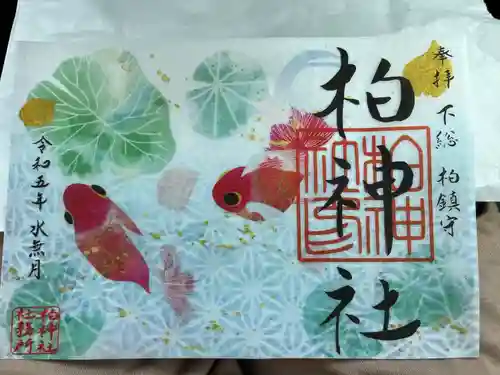 奉拝 下総 柏鎮守
柏神社
令和五年 水無月
柏神社
社務所